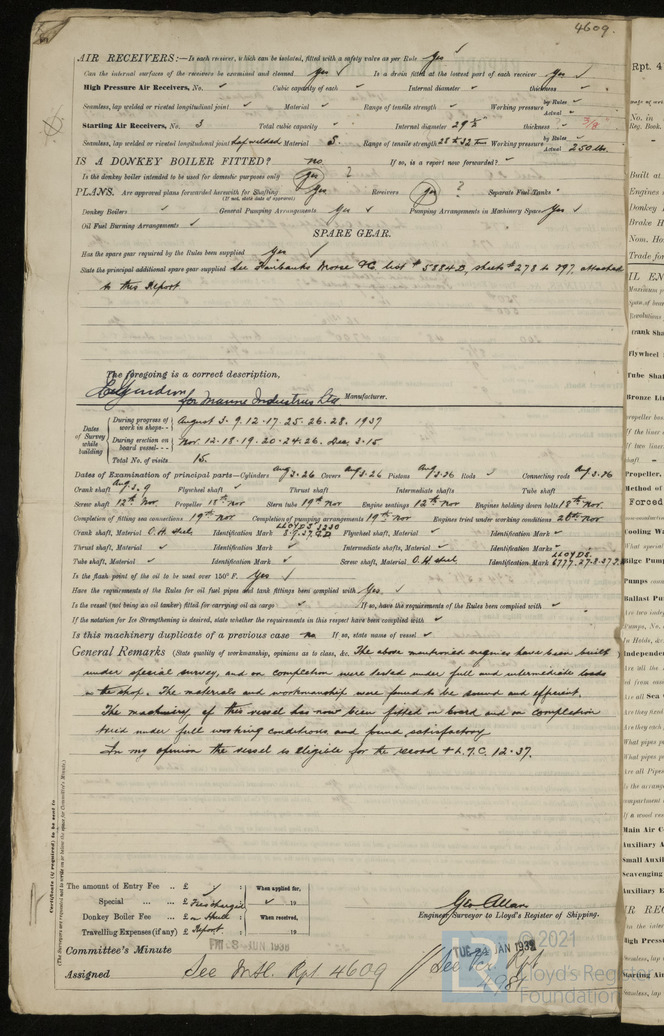 4609.
AIR RECEIVERS:—Is each receiver, which can be isolated, fitted with a safety valve as per Rule Yes ✓
Can the internal surfaces of the receivers be examined and cleaned Yes ✓ Is a drain fitted at the lowest part of each receiver Yes ✓
High Pressure Air Receivers, No. ✓ Cubic capacity of each ✓ Internal diameter ✓ thickness ✓
Seamless, lap welded or riveted longitudinal joint ✓ Material ✓ Range of tensile strength ✓ Working pressure by Rules ✓ Actual ✓
Starting Air Receivers, No. 3 Total cubic capacity ✓ Internal diameter 29½" thickness 3/8
Seamless, lap welded or riveted longitudinal joint Lap welded Material S. Range of tensile strength 28 to 32 Tons Working pressure by Rules ✓ Actual 250 lbs.
IS A DONKEY BOILER FITTED? no If so, is a report now forwarded? ✓
Is the donkey boiler intended to be used for domestic purposes only Yes ?
PLANS. Are approved plans forwarded herewith for Shafting Yes Receivers Yes ? Separate Fuel Tanks
(If not, state date of approval)
Donkey Boilers ✓ General Pumping Arrangements Yes ✓ Pumping Arrangements in Machinery Space Yes ✓
Oil Fuel Burning Arrangements ✓
SPARE GEAR.
Has the spare gear required by the Rules been supplied Yes ✓
State the principal additional spare gear supplied See Fairbanks Morse & Co list # 5884D, sheets # 278 to 297, attached
to this Report
The foregoing is a correct description,
for Marine Industries Ltd Manufacturer.
Dates of Survey while building
During progress of work in shops-- August 3. 9. 12. 17. 25. 26. 28. 1937
During erection on board vessel--- Nov. 12. 18. 19. 20. 24. 26. Dec. 3. 15
Total No. of visits 15.
Dates of Examination of principal parts—Cylinders Aug 3. 26 Covers Aug 3. 26 Pistons Aug 3. 26 Rods ✓ Connecting rods Aug 3. 26
Crank shaft Aug 3, 9 Flywheel shaft ✓ Thrust shaft Intermediate shafts Tube shaft
Screw shaft 12th Nov. Propeller 18th Nov Stern tube 19th Nov Engine seatings 12th Nov. Engines holding down bolts 18th Nov.
Completion of fitting sea connections 19th Nov Completion of pumping arrangements 19th Nov Engines tried under working conditions 26th Nov.
Crank shaft, Material O.H. Steel Identification Mark LLOYDS 3230 Flywheel shaft, Material ✓ Identification Mark ✓
Thrust shaft, Material ✓ Identification Mark ✓ Intermediate shafts, Material ✓ Identification Marks ✓
Tube shaft, Material ✓ Identification Mark ✓ Screw shaft, Material O.H. steel Identification Mark LLOYDS
Is the flash point of the oil to be used over 150° F. Yes ✓
Have the requirements of the Rules for oil fuel pipes and tank fittings been complied with Yes ✓
Is the vessel (not being an oil tanker) fitted for carrying oil as cargo ✓ If so, have the requirements of the Rules been complied with ✓
If the notation for Ice Strengthening is desired, state whether the requirements in this respect have been complied with ✓
Is this machinery duplicate of a previous case no If so, state name of vessel ✓
General Remarks (State quality of workmanship, opinions as to class, &c. The above mentioned engines have been built
under special survey, and on completion were tested under full and intermediate loads
in the shop. The materials and workmanship were found to be sound and efficient.
The machinery of this vessel has now been fitted on board and on completion
tried under full working conditions and found satisfactory
In my opinion the vessel is eligible for the record + L.M.C. 12. 37.
Certificate (if required) to be sent to
(The Surveyors are requested not to write on or below the space for Committee's Minute.)
The amount of Entry Fee .. £ When applied for,
Special ... ... £ Fees charged ✓ 19
Donkey Boiler Fee ... £ on Hull When received,
Travelling Expenses (if any) £ Report. 19
Geo. Allan
Engineer Surveyor to Lloyd's Register of Shipping.
Committee's Minute FRI. 3 JUN 1938 TUE 24 JAN 1939
Assigned See Mtl. Rpt 4609 See Rpt
© 2021
Lloyd's Register
Foundation
Rpt. 4
No. in
Reg. Book.
Built at
Engines
Donkey
Brake H
Nom. Ho
Trade for